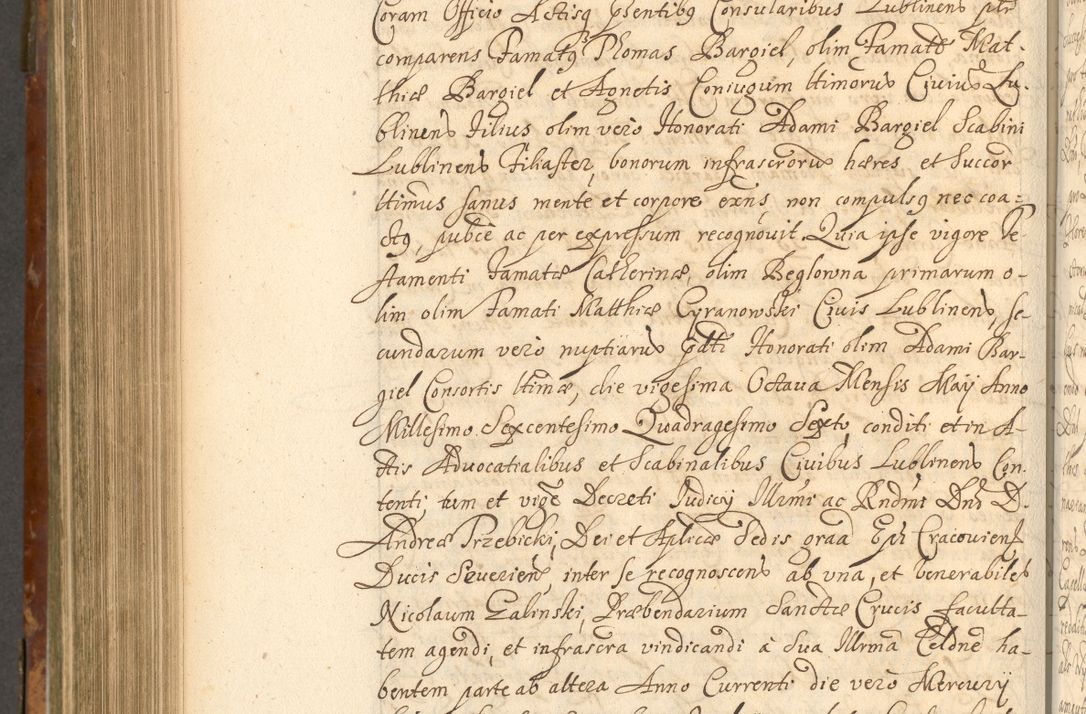 Coram Officio Actisq pnsentibq Consularibus Lublinens ptr
comparens Famatq Thomas Bargiel, olim Famatt Mat-
thiæ Bargiel et Agnetis Coniugum ltimoru Ciuiu Lu-
blinens Filius olim vero Honorati Adami Bargiel Scabini
Lublinens Filiaster, bonorum infrascroru hæres et Succor
ltimus sanus mente et corpore exns non compulsq nec coa-
ctq, pubce ac per expressum recognouit Quia ipse vigore Te-
stamenti Famatæ Catherinæ olim Beglowna primarum o-
lim olim Famati Matthiæ Cyranowski Ciuis Lublinens, se-
cundarum vero nuptiaru pdtti Honorati olim Adami Bar-
giel Consortis ltimæ, die vigesima Octaua Mensis Maij Anno
Millesimo Sexcentesimo Quadragesimo Sexto, conditi et in A-
ctis Aduocatialibus et Scabinalibus Ciuibus Lublinens Con-
tenti; tum et vige Decreti Judicij Illrmi ac Rndmi Dni D.
Andreæ Trzebicki, Dei et Aplicæ Sedis graa Epi Cracouiens
Ducis Seueriens, inter se recognoscens ab vna, et Venerabiles
Nicolaum Galinski, Præbendarium Sanctæ Crucis faculta-
tem agendi, et infrascra vindicandi à Sua Illrma Celdne ha-
bentem parte ab altera Anno Currenti die vero Mercurij